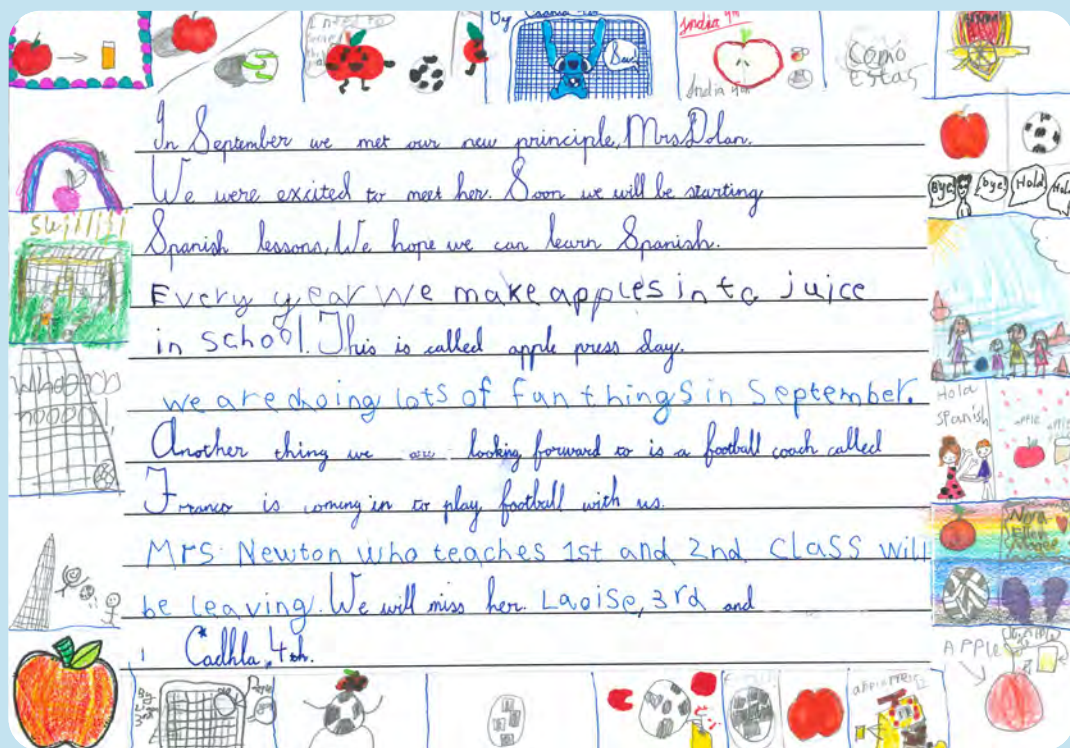 I need to
By
Save!
India 4th
India 4th
Como
estas
In September we met our new principle, Mrs Dolan.
Bye!
bye!
Hola!
We were excited to meet her. Soon we will be starting
Spanish lessons, We hope we can learn Spanish.
Every year we make apples into juice
in school. This is called apple press day.
we are doing lots of fun things in September.
Hola
Spanish
apple
Another thing we are looking forward to is a football coach called
Franco is coming in to play football with us.
Nora
Ellen
Mrs. Newton who teaches 1st and 2nd class will
be leaving. We will miss her. Laoise, 3rd and
Cadhla, 4th.
APPLE